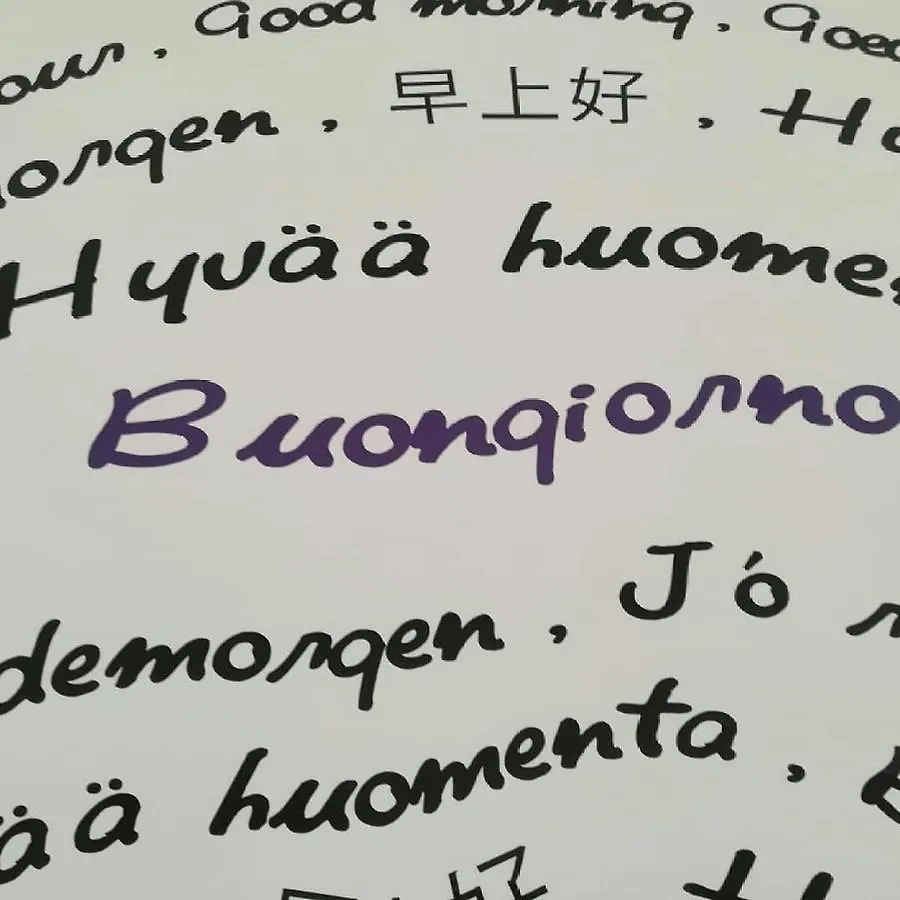 our, Good morning, Goed
orgen, 早上好, H
Hyvää huomen
Buongiorno
demorgen, Jó
ää huomenta,
好 H